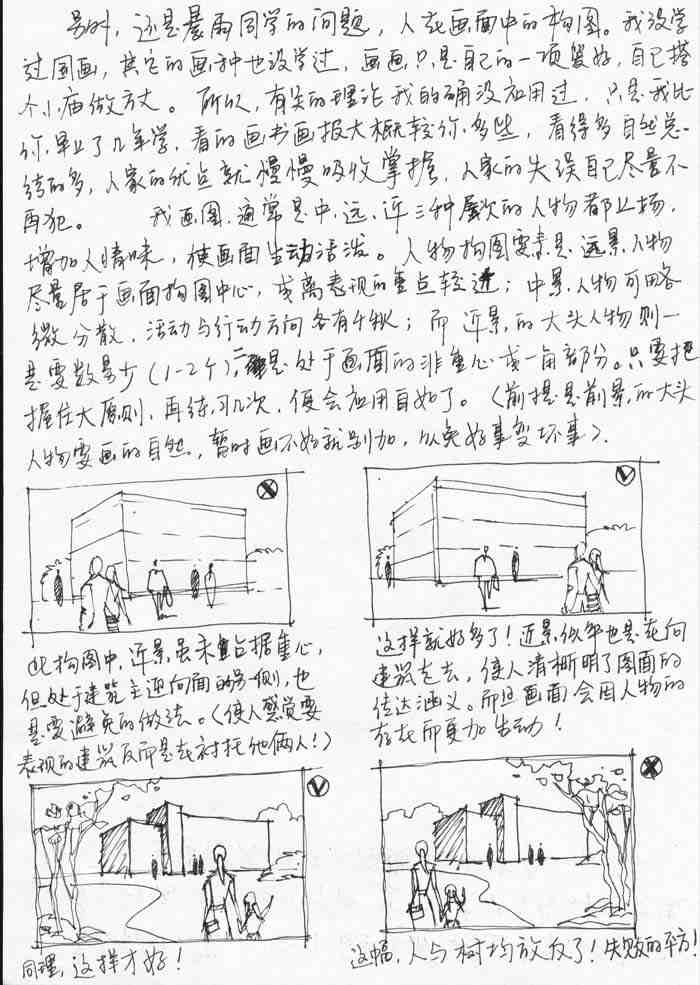 另外，还是暴雨同学的问题，人在画面中的构图。我没学
过国画，其它的画种也没学过，画画只是自己的一项爱好，自己搭
个小庙做方丈。所以，有关的理论我的确没应用过，只是我比
你早业了几年学，看的画书画报大概较你多些，看得多自然总
结的多，人家的优点就慢慢吸收掌握，人家的失误自己尽量不
再犯。我画图，通常是中、远、近三种层次的人物都上场，
增加人情味，使画面生动活泼。人物构图要素是远景人物
尽量居于画面构图中心，或离表现的重点较近；中景人物可略
微分散，活动与行动方向各有千秋；而近景的大头人物则一
是要数量少（1-2个），二是处于画面的非重心或一角部分。只要把
握住大原则，再练习几次，便会应用自如了。（前提是前景的大头
人物要画的自然，暂时画不好就别加，以免好事变坏事）.
此构图中，近景虽未占据重心，
但处于建筑主迎向面的另一侧，也
是要避免的做法。（使人感觉要
表现的建筑反而是在衬托他俩人！）
这样就好多了！近景似乎也是在向
建筑走去，使人清晰明了图面的
传达涵义。而且画面会因人物的
存在而更加生动！
同理，这样才好！
这幅，人与树均放反了！失败的平方！